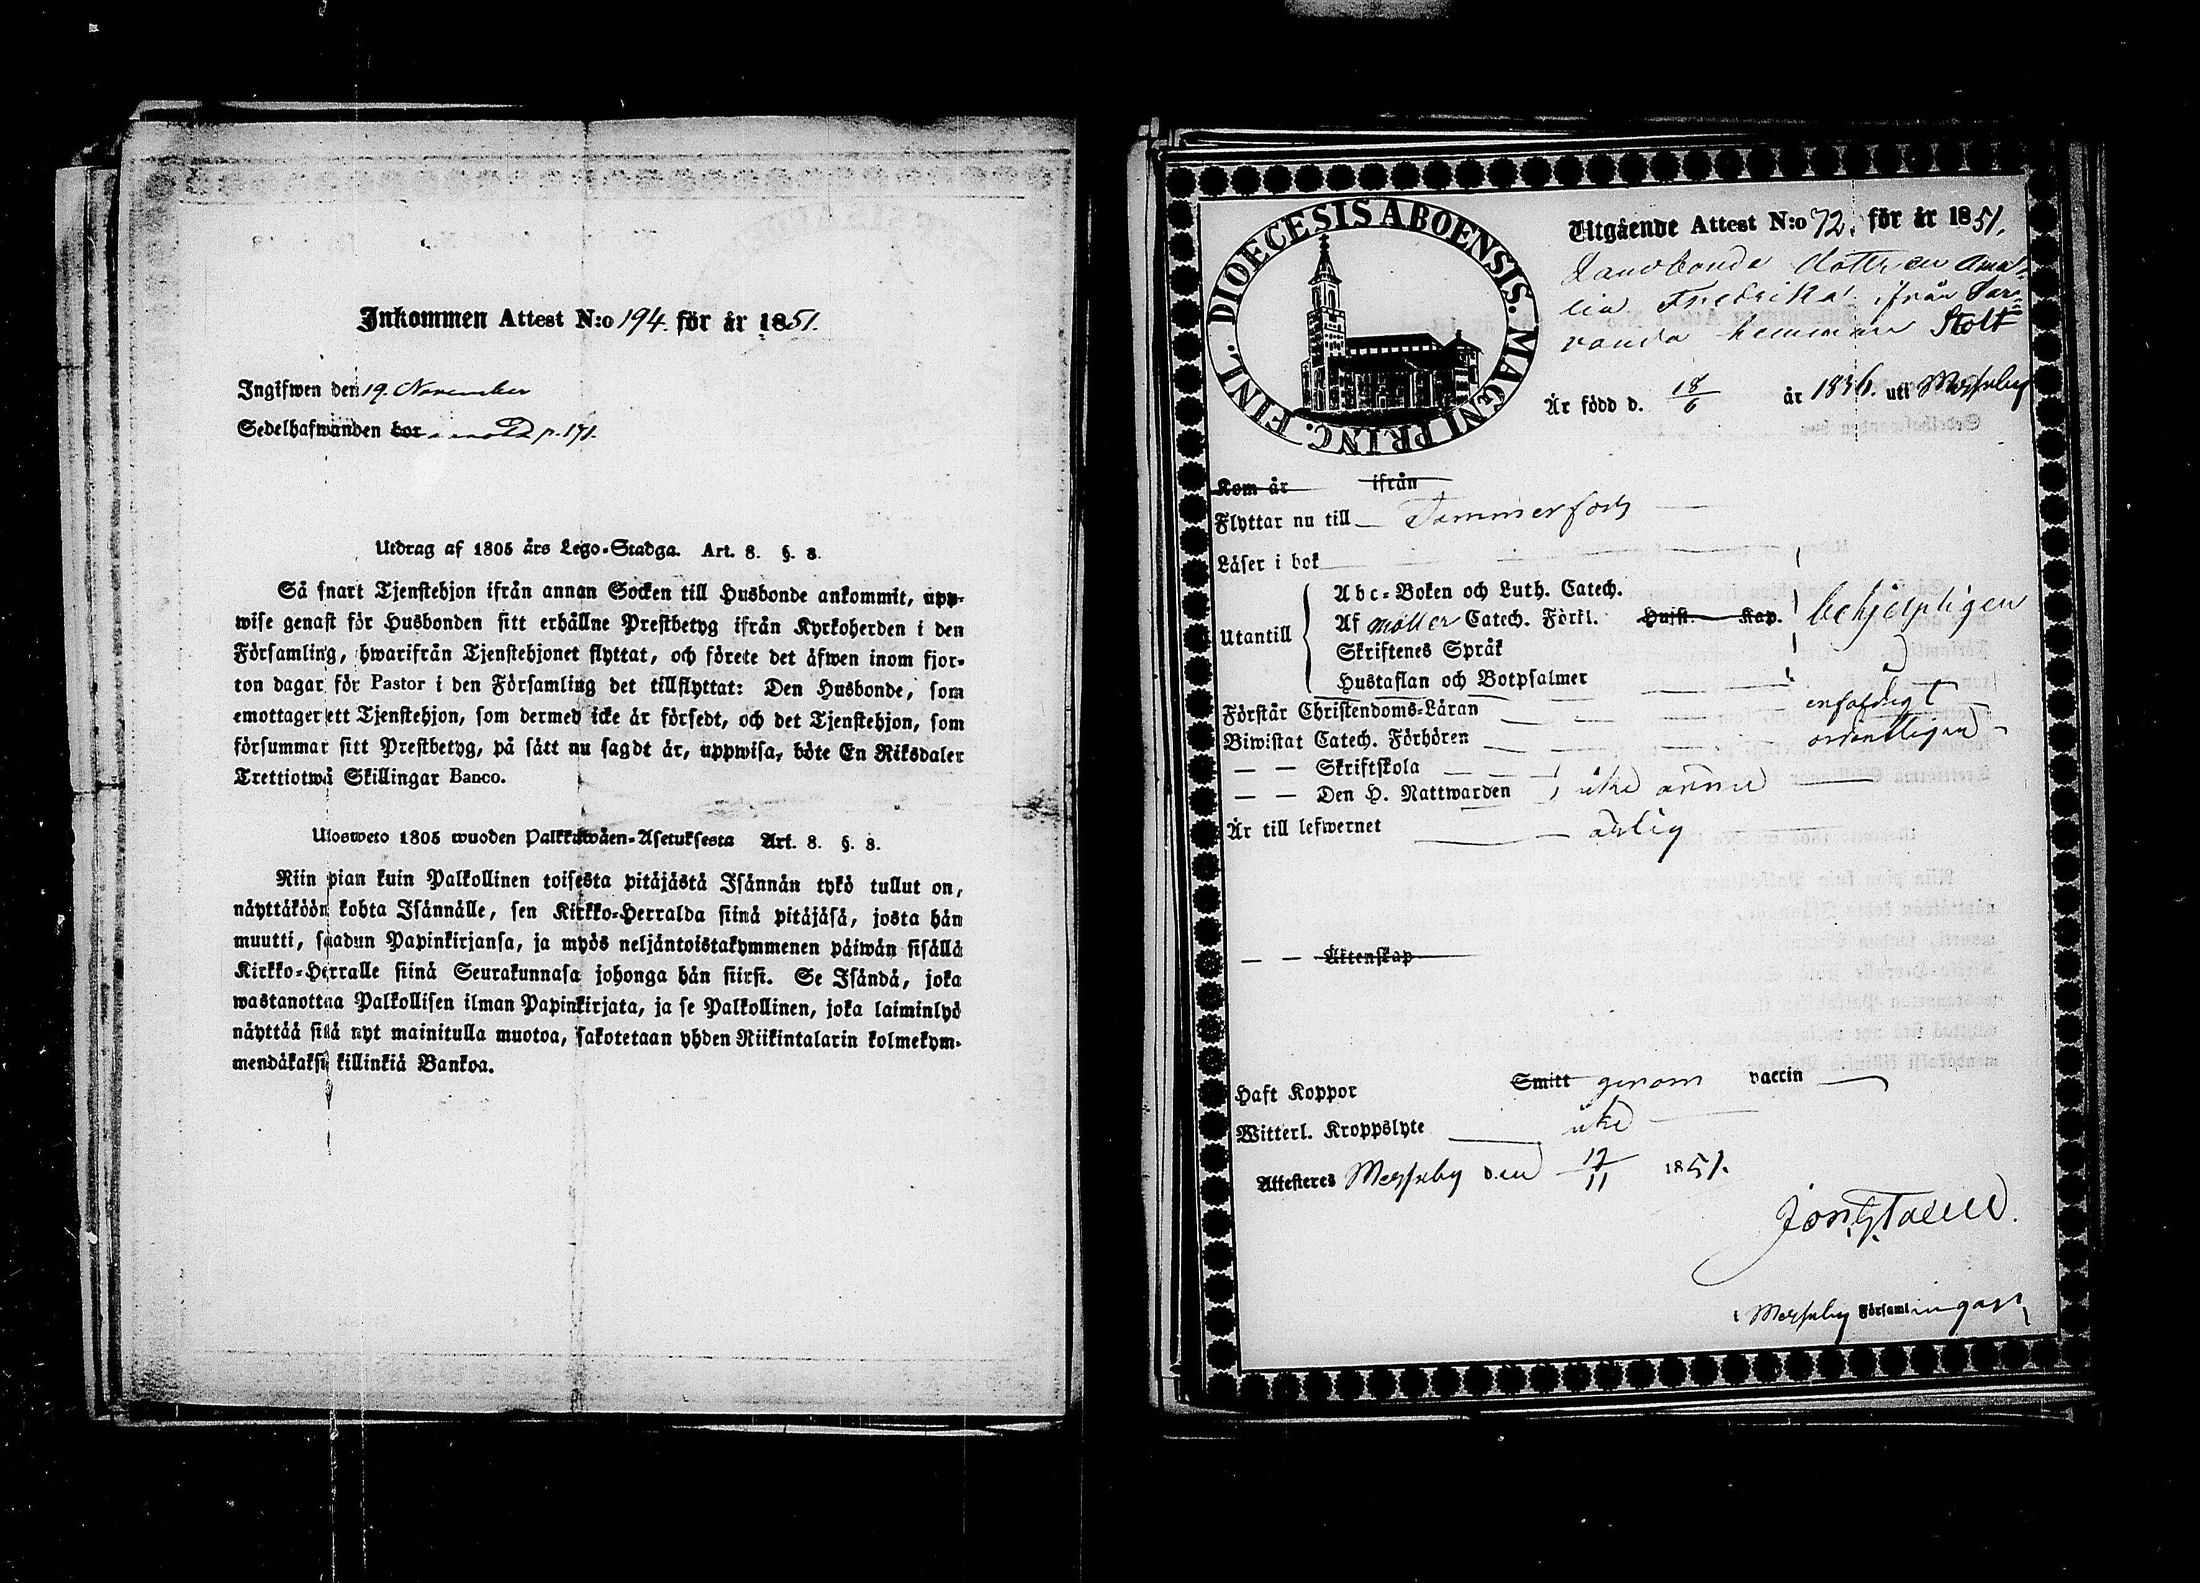 Inkommen Attest N:o 194. för år 1851.
Ingifwen den 19. November
Sedelhafwanden bor p. 171.
Utdrag af 1805 års Lego-Stadga. Art. 8. §. 8.
Så snart Tjenstehjon ifrån annan Socken till Husbonde ankommit, upp-
wise genast för Husbonden sitt erhållne Prestbetyg ifrån Kyrkoherden i den
Församling, hwarifrån Tjenstehjonet flyttat, och förete det äfwen inom fjor-
ton dagar för Pastor i den Församling det tillflyttat: Den Husbonde, som
emottager ett Tjenstehjon, som dermed icke är försedt, och det Tjenstehjon, som
försummar sitt Prestbetyg, på sätt nu sagdt är, uppwisa, böte En Riksdaler
Trettiotwå Skillingar Banco.
Ulosweto 1805 wuoden Palkkawäen-Asetuksesta Art. 8. §. 8.
Niin pian kuin Palkollinen toisesta pitäjästä Isännän tykö tullut on,
näyttäköön kohta Isännälle, sen Kirkko-Herralda siinä pitäjäsä, josta hän
muutti, saadun Papinkirjansa, ja myös neljäntoistakymmenen päiwän sisällä
Kirkko-Herralle siinä Seurakunnasa johonga hän siirsi. Se Isändä, joka
wastanottaa Palkollisen ilman Papinkirjata, ja se Palkollinen, joka laiminlyö
näyttää sitä nyt mainitulla muotoa, sakotetaan yhden Riikintalarin kolmekym-
mendäkaksi killinkiä Bankoa.
DIOECESIS ABOENSIS. MAGNI PRINC. FINL.
Utgående Attest N:o 72. för år 1851.
Landbonde dottren Ama-
lia Fredrika, ifrån Sar-
vanda hemman Stolt
Är född d. 18/6 år 1836. uti Messuby
Kom år ifrån
Flyttar nu till Tammerfors
Läser i bok
Utantill
Abc-Boken och Luth. Catech.
Af Möller Catech. Förkl. Husft. Kap. behjelpligen
Skriftenes Språk
Hustaflan och Botpsalmer
Förstår Christendoms-Läran enfaldigt
Biwistat Catech. Förhören ordentligen
— — Skriftskola
— — Den H. Nattwarden icke ännu
Är till lefwernet ärlig
— — Äktenskap
Haft Koppor Smitt genom vaccin
Witterl. Kroppslyte icke
Attesteras Messuby den 12/11 1851.
i Messuby Församlingar